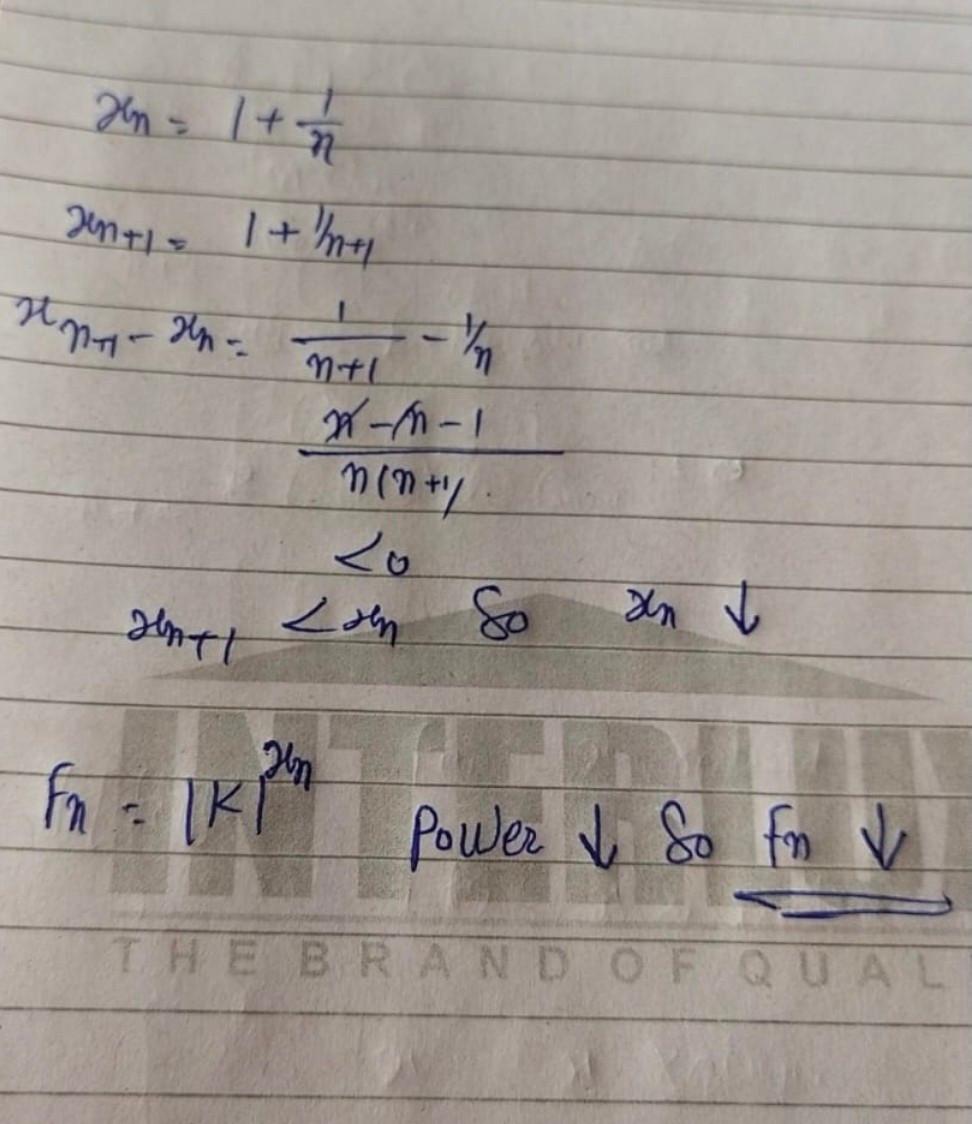 xn = 1 + 1/n
xn+1 = 1 + 1/n+1
xn+1 - xn = 1/n+1 - 1/n
n - n - 1 / n(n+1)
<0
xn+1 < xn So xn ↓
fn = |K|^xn Power ↓ So fn ↓
THE BRAND OF QUAL